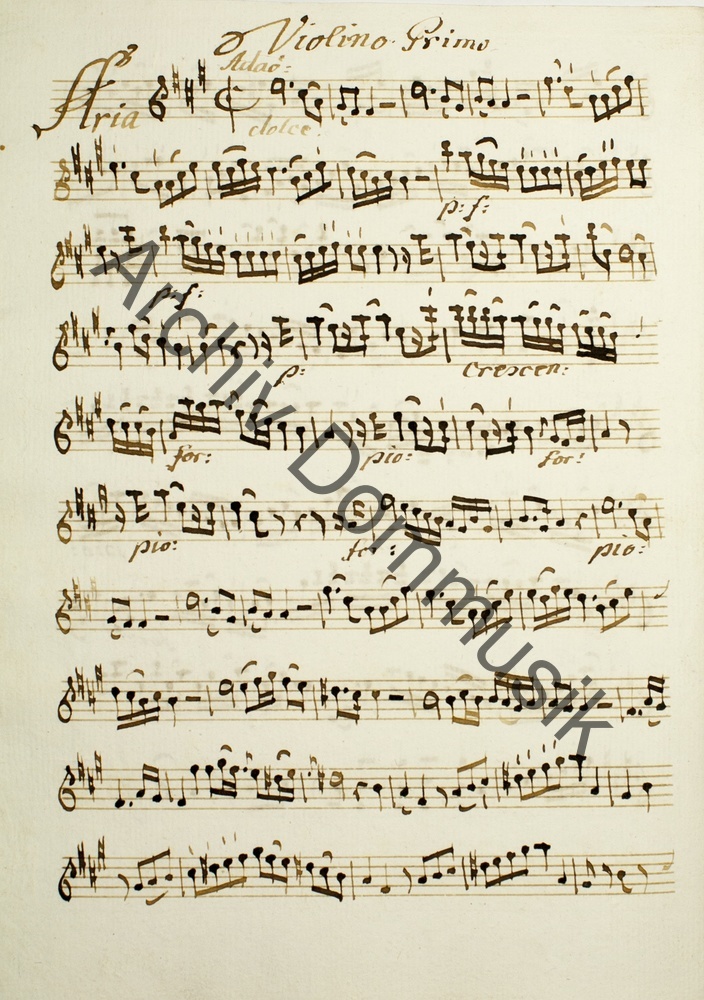 Violino Primo
Adao:
Aria
dolce
p: f:
p: f:
p:
Crescen:
for: pio: for:
pio: for: pio:
Archiv Dommusik